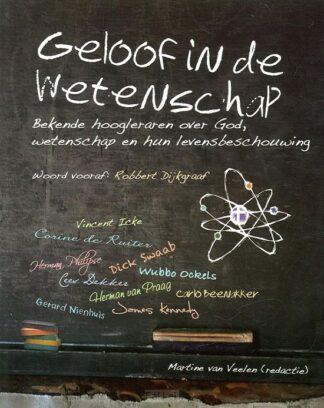 Geloof in de
wetenschap
Bekende hoogleraren over God,
wetenschap en hun levensbeschouwing
Woord vooraf: Robbert Dijkgraaf
Vincent Icke
Corine de Ruiter
Herman Philipse
Dick Swaab
Cees Dekker
Wubbo Ockels
Herman van Praag
Carlo Beenakker
Gerard Nienhuis
James Kennedy
Martine van Veelen (redactie)